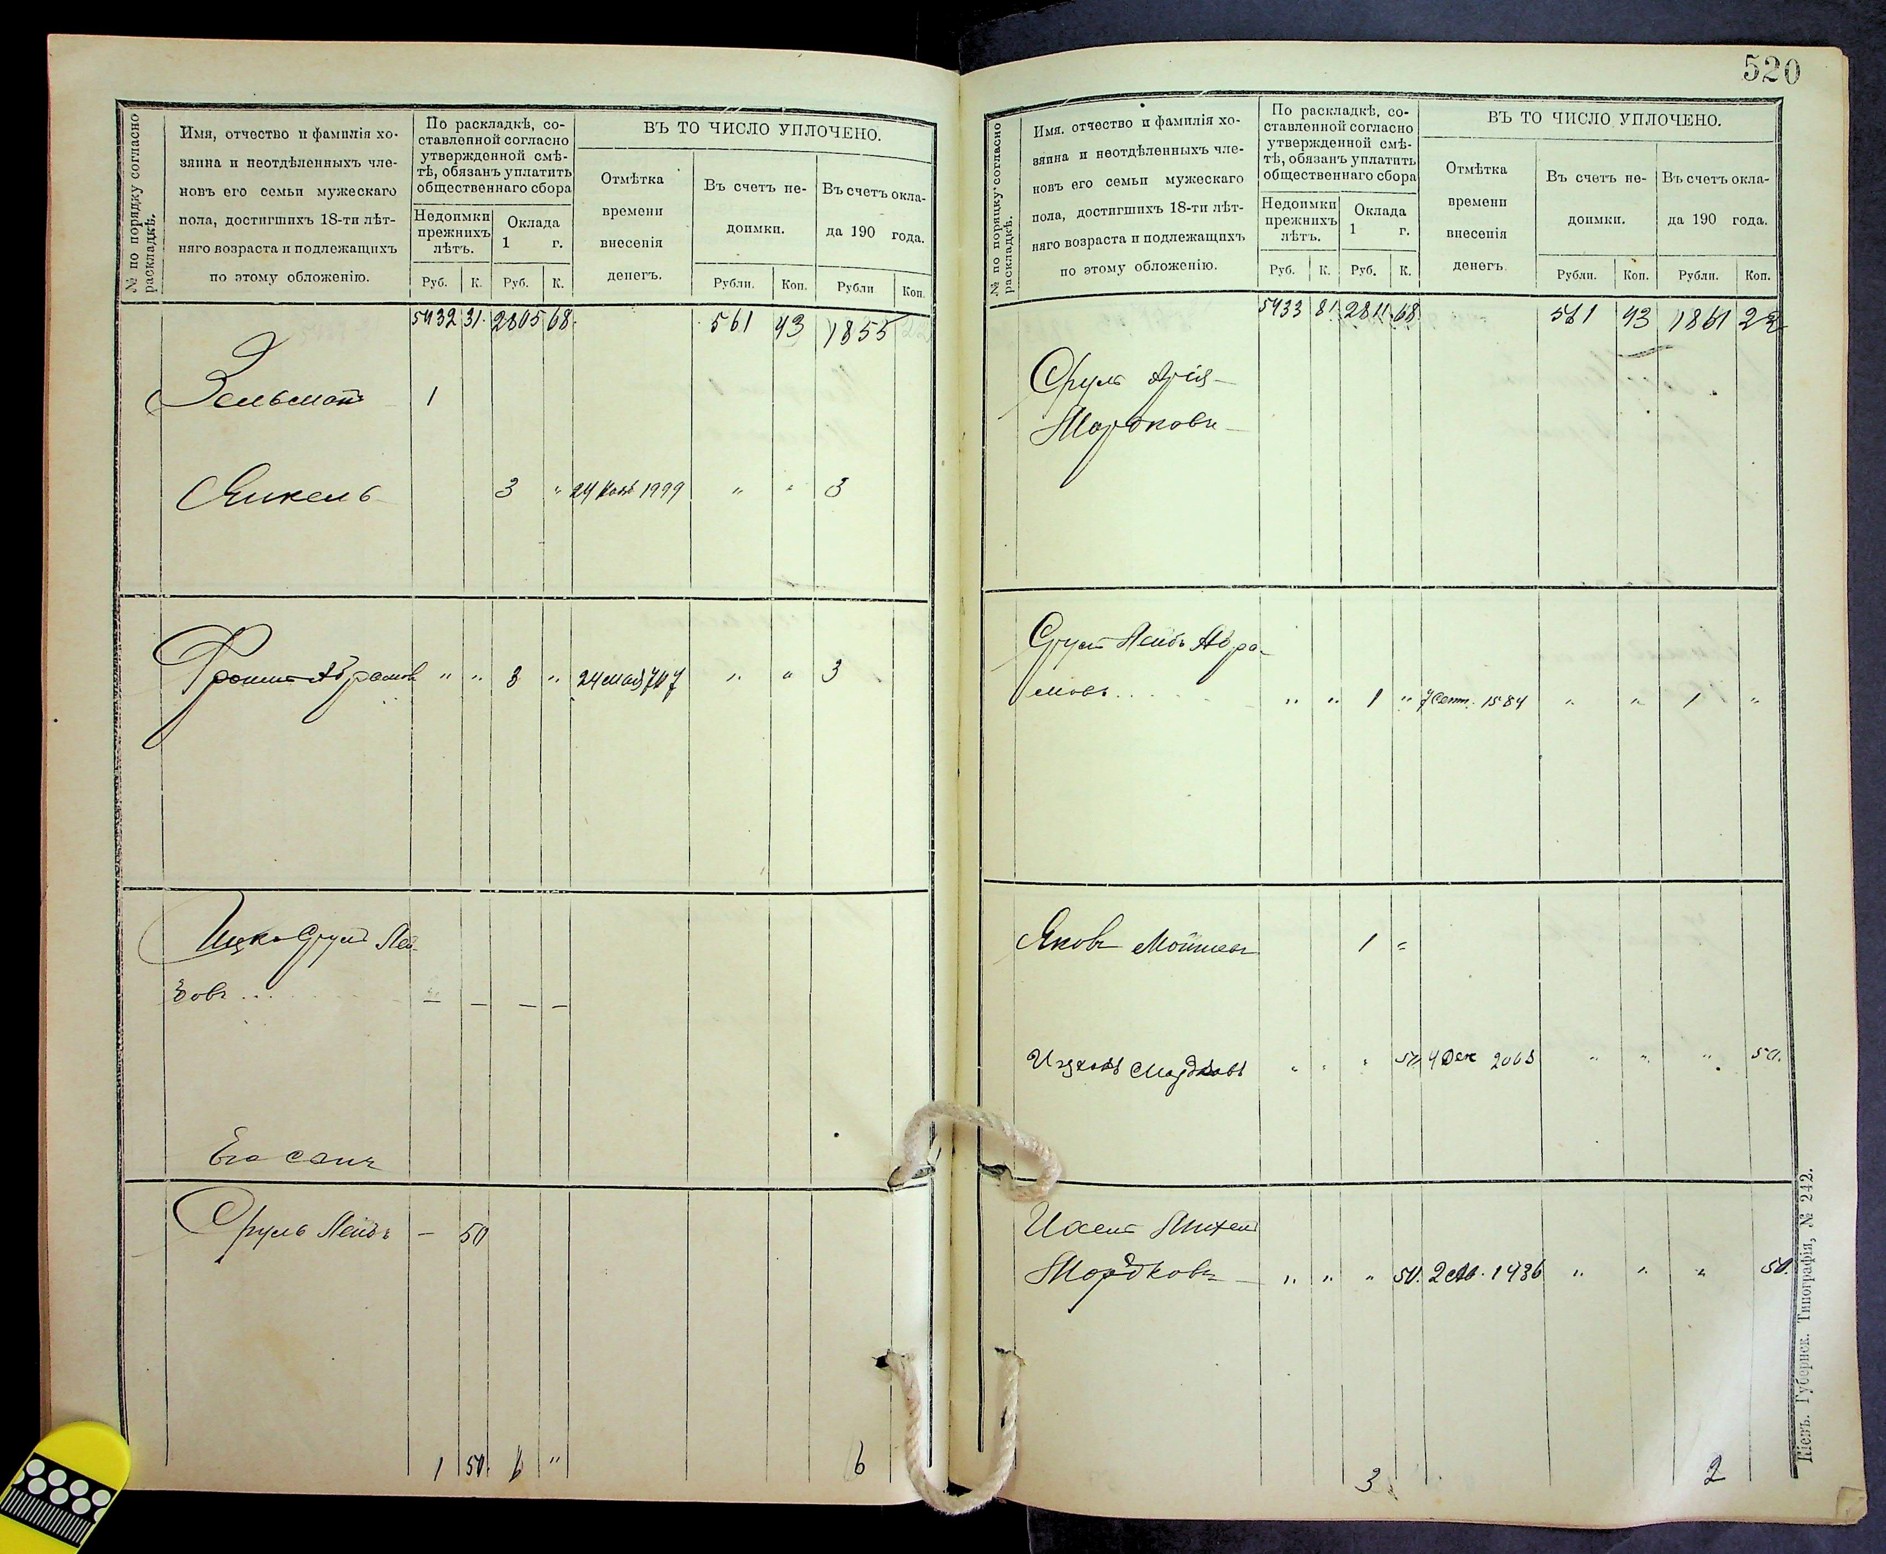 520
№ по порядку согласно раскладкѣ.
Имя, отчество и фамилія хо-
зяина и неотдѣленныхъ чле-
новъ его семьи мужескаго
пола, достигшихъ 18-ти лѣт-
няго возраста и подлежащихъ
по этому обложенію.
По раскладкѣ, со-
ставленной согласно
утвержденной смѣ-
тѣ, обязанъ уплатить
общественнаго сбора
Недоимки
прежнихъ
лѣтъ.
Оклада
1 г.
Руб. К. Руб. К.
ВЪ ТО ЧИСЛО УПЛОЧЕНО.
Отмѣтка
времени
внесенія
денегъ.
Въ счетъ не-
доимки.
Въ счетъ окла-
да 190 года.
Рубли. Коп. Рубли Коп.
5432 31 2805 68 561 43 1855
Зельман 1
Янкель 3 " 24 1999 " " 3
Абрамов " " 3 " 24 мая 707 " " 3
Ицко Срул Лей-
бовъ ... — — — —
Его сынъ
Сруль Лейбъ — 50
1 50 6 " 6
№ по порядку согласно раскладкѣ.
Имя. отчество и фамилія хо-
зяина и неотдѣленныхъ чле-
новъ его семьи мужескаго
пола, достигшихъ 18-ти лѣт-
няго возраста и подлежащихъ
по этому обложенію.
По раскладкѣ, со-
ставленной согласно
утвержденной смѣ-
тѣ, обязанъ уплатить
общественнаго сбора
Недоимки
прежнихъ
лѣтъ.
Оклада
1 г.
Руб. К. Руб. К.
ВЪ ТО ЧИСЛО УПЛОЧЕНО.
Отмѣтка
времени
внесенія
денегъ
Въ счетъ не-
доимки.
Въ счетъ окла-
да 190 года.
Рубли. Коп. Рубли. Коп.
5433 81 2811 68 561 43 1861 22
Сруль Арія
Мордковъ
Срул Лейбъ Абра-
мовъ " " 1 " 7 Сент. 1584 " " 1 "
Яковъ Мойшевъ 1 "
Ицковъ Мордковъ " " " 50 4 Дек 2063 " " " 50.
Мордковъ " " " 50. 2 1936 " " " 50.
3 2
Кіевъ. Губернск. Типографія, № 242.